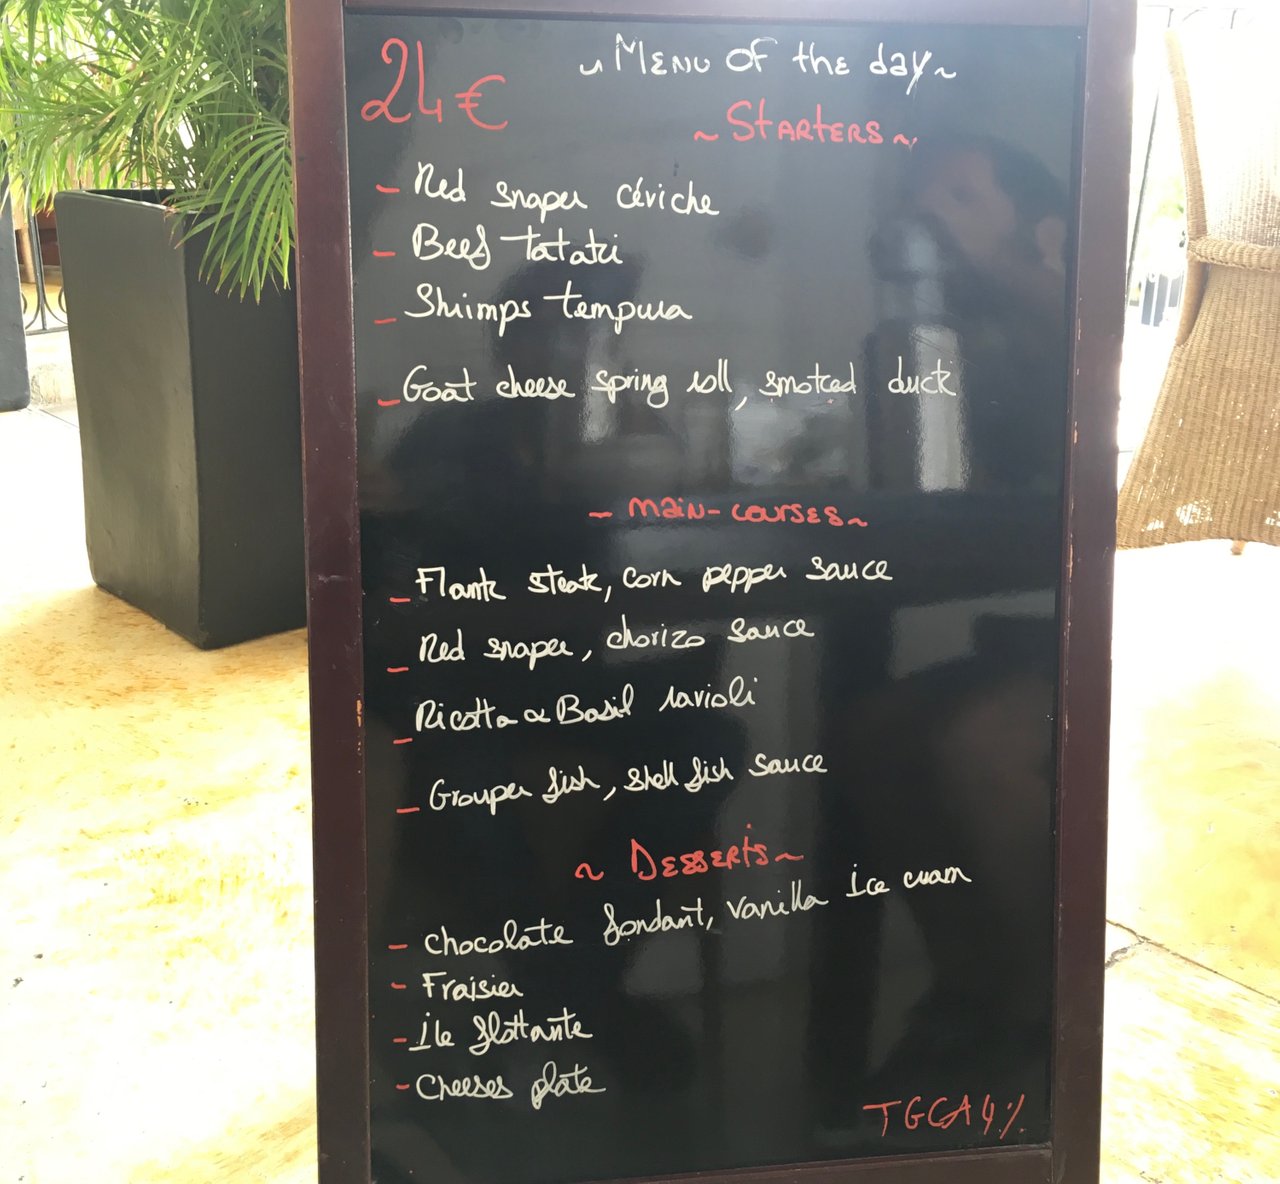 24€
~ Menu of the day ~
~ Starters ~
- Red snaper céviche
- Beef tataki
- Shrimps tempura
- Goat cheese spring roll, smoked duck
- Main-courses ~
- Flank steak, corn pepper sauce
- Red snaper, chorizo sauce
- Ricotta & Basil ravioli
- Grouper fish, shell fish sauce
~ Desserts ~
- chocolate fondant, vanilla ice cream
- Fraisier
- île flottante
- Cheeses plate
TGCA 4%